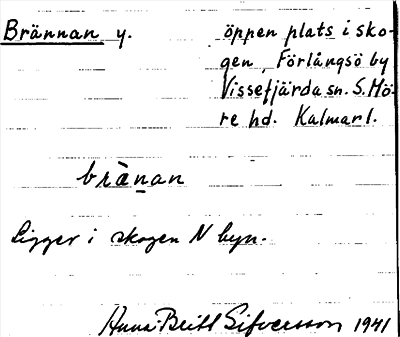 Brännan y. öppen plats i sko-
gen, Förlångsö by
Vissefjärda sn. S. Mö-
re hd. Kalmar l.
brànan
Ligger i skogen N byn.
Anna-Britt Sifversson 1941